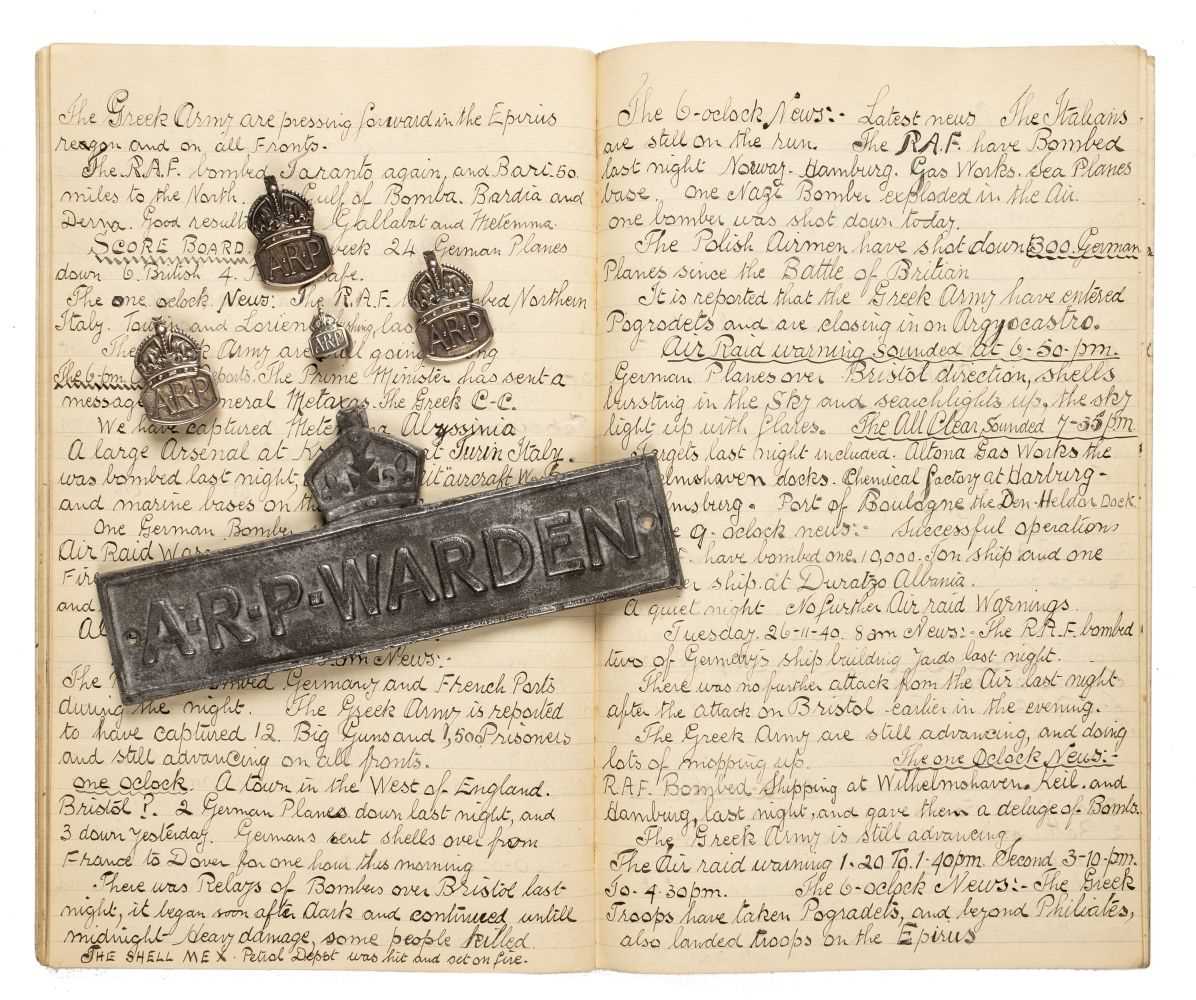 The Greek Army are pressing forward in the Epirus
reagon and on all Fronts.
The R.A.F. bombed Taranto again, and Bari. 50
miles to the North. Gulf of Bomba. Bardia and
Derna. Good result Gallabat and Metemma.
SCORE BOARD. week 24 German Planes
down 6 British 4. safe.
The one oclock News: The R.A.F. bed Northern
Italy. and Lorien thing, las
The k Army are all going ng
The 6-pm ports. The Prime Minister has sent a
message neral Metaxas. The Greek C-C.
We have captured Mete a Abyssinia
A large Arsenal at at Turin Italy.
was bombed last night, it "aircraft W
and marine bases on th
One German Bombe
Air Raid War
Fire
and
Al
8am News:-
The bed Germany and French Ports
during the night. The Greek Army is reported
to have captured 12 Big Guns and 1,500 Prisoners
and still advancing on all fronts.
one oclock. A town in the West of England.
Bristol ?. 2 German Planes down last night, and
3 down yesterday. Germans sent shells over from
France to Dover for one hour this morning
There was Relays of Bombers over Bristol last
night, it began soon after dark and continued untill
midnight Heavy damage, some people killed.
THE SHELL MEX. Petrol Depot was hit and set on fire.
The 6-oclock News:- Latest news The Italians
are still on the run. The R.A.F. have Bombed
last night Norway. Hamburg. Gas Works. Sea Planes
base. One Nazi Bomber exploded in the Air.
one bomber was shot down today.
The Polish Airmen have shot down 300. German
Planes since the Battle of Britian
It is reported that the Greek Army have entered
Pogrodets and are closing in on Argyocastro.
Air Raid warning Sounded at 6-50-pm.
German Planes over Bristol direction, shells
bursting in the Sky and searchlights up, the sky
light up with flares. The All Clear, Sounded 7-35 pm
Targets last night included. Altona Gas Works the
elmshaven docks. Chemical Factory at Harburg-
msburg. Port of Boulogne the Den-Heldar Dock
e 9-oclock news:- Successful operations
have bombed one 10,000. Ton ship and one
er ship at Duratzo Albania.
A quiet night No further Air raid Warnings.
Tuesday. 26-11-40. 8am News:- The R.A.F. bombed
two of Germery's ship building yards last night.
There was no further attack from the Air last night
after the attack on Bristol earlier in the evening.
The Greek Army are still advancing, and doing
lots of mopping up. The one Oclock News:-
RAF. Bombed Shipping at Wilhelmshaven. Keil. and
Hamburg, last night, and gave them a deluge of Bombs.
The Greek Army is still advancing.
The Air raid warning 1-20 To 1-40pm. Second 3-10-pm.
To- 4.30pm. The 6-oclock News:- The Greek
Troops have taken Pogradets, and beyond Philiates,
also landed troops on the Epirus
A.R.P
A.R.P
A.R.P
A.R.P
A.R.P.WARDEN